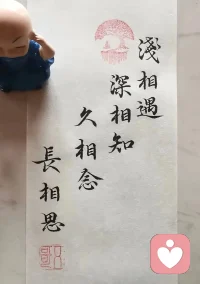 淺相遇
深相知
久相念
長相思